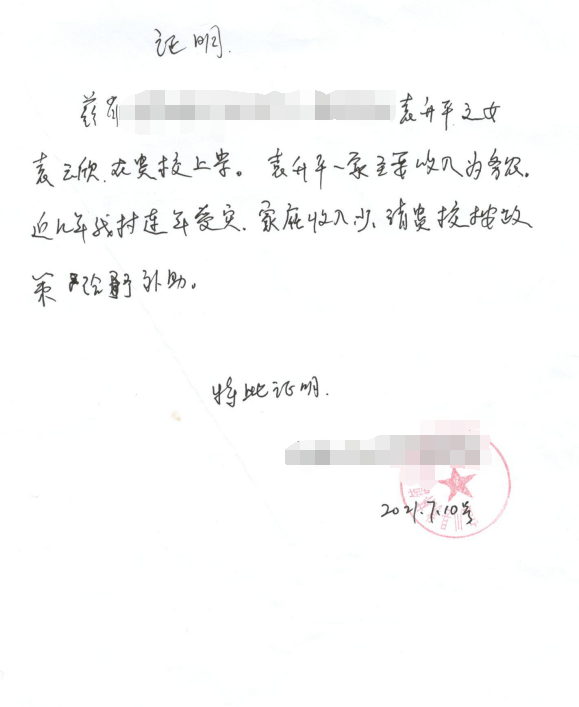 证明.
兹有 袁升平之女
袁云欣,在贵校上学。袁升平一家主要收入为务农.
近几年我村连年受灾.家庭收入少,请贵校按政
策给予补助。
特此证明.
2021.7.10号